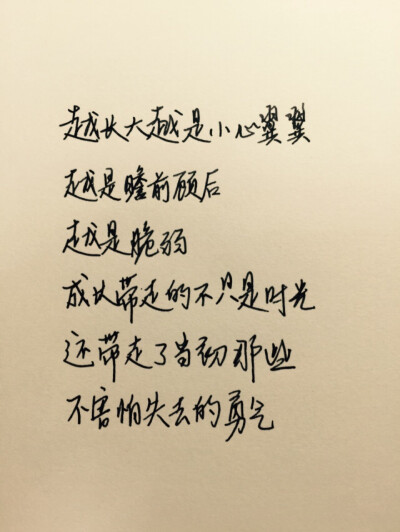 越长大越是小心翼翼
越是瞻前顾后
越是脆弱
成长带走的不只是时光
还带走了当初那些
不害怕失去的勇气